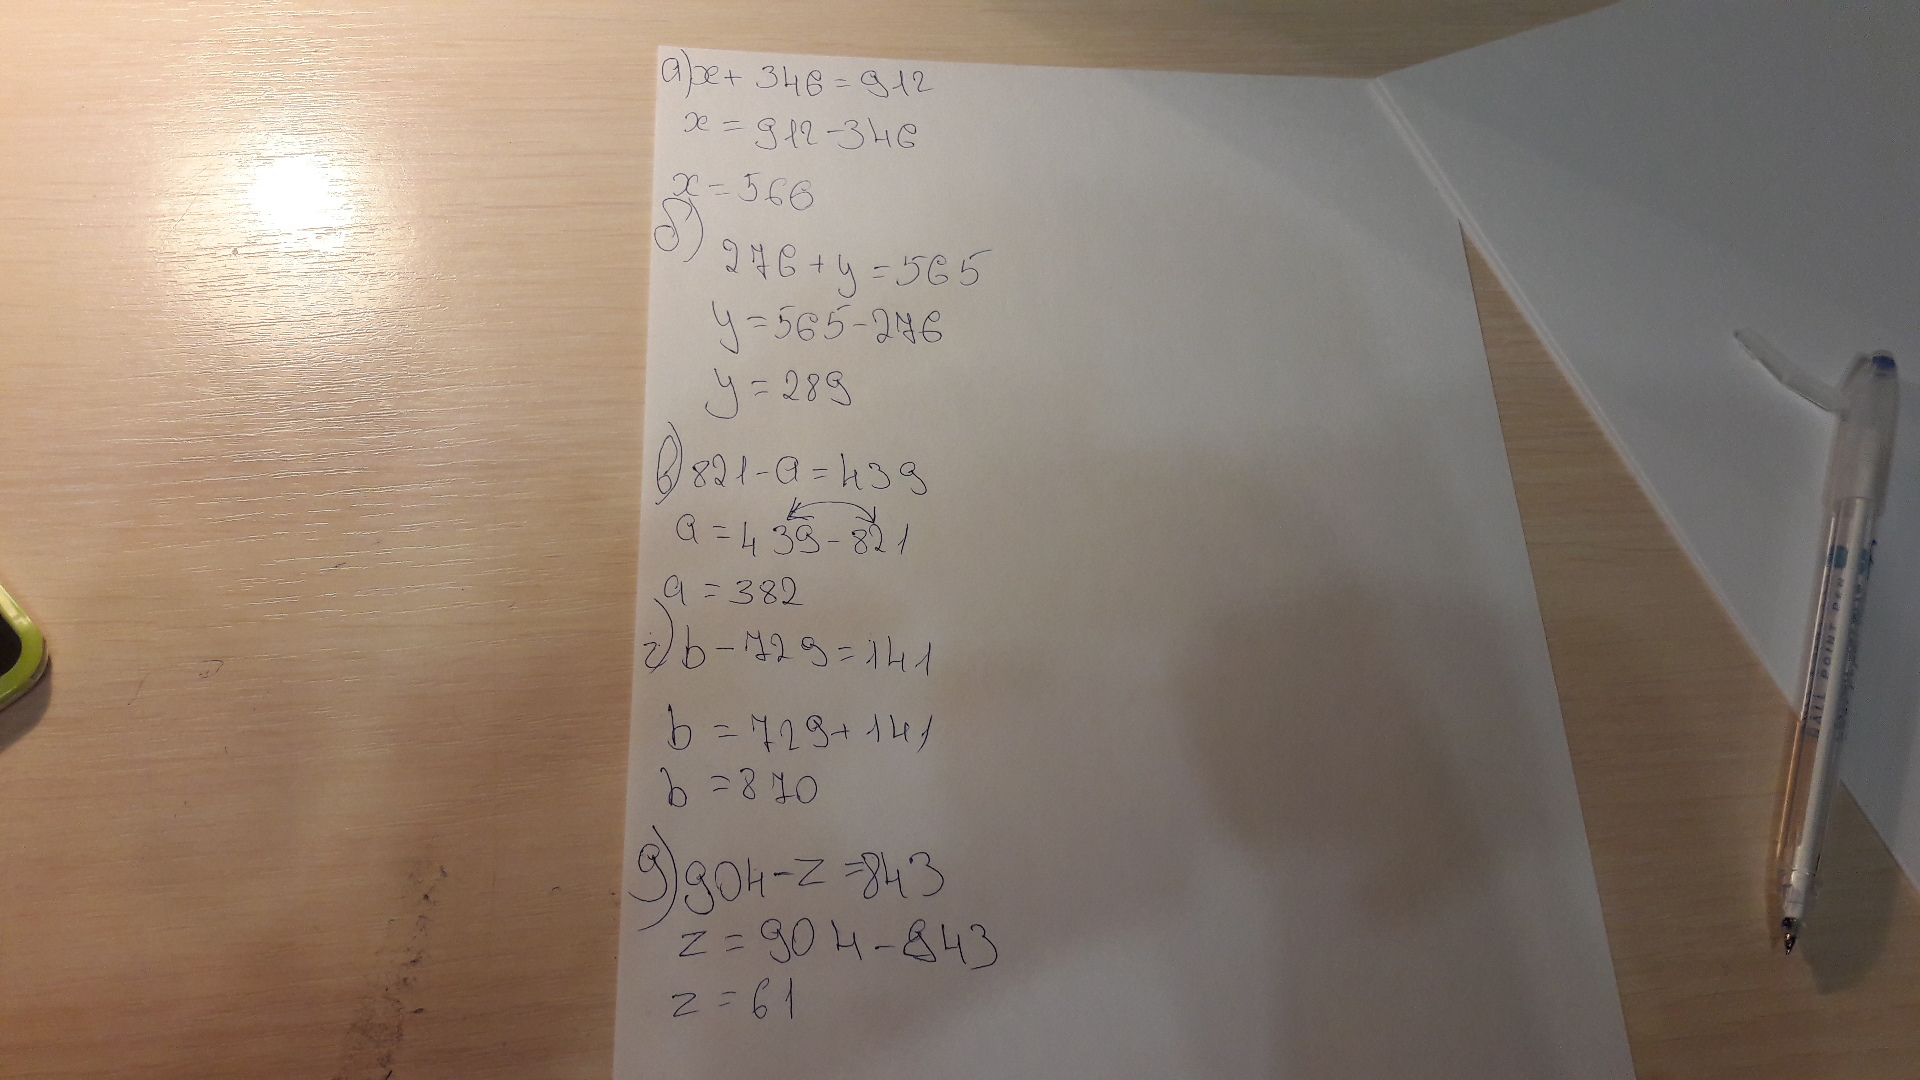 а) x + 346 = 912
x = 912 - 346
x = 566
б)
276 + y = 565
y = 565 - 276
y = 289
в) 821 - a = 439
a = 439 - 821
a = 382
г) b - 729 = 141
b = 729 + 141
b = 870
д) 904 - z = 843
z = 904 - 843
z = 61
BALL POINT PEN